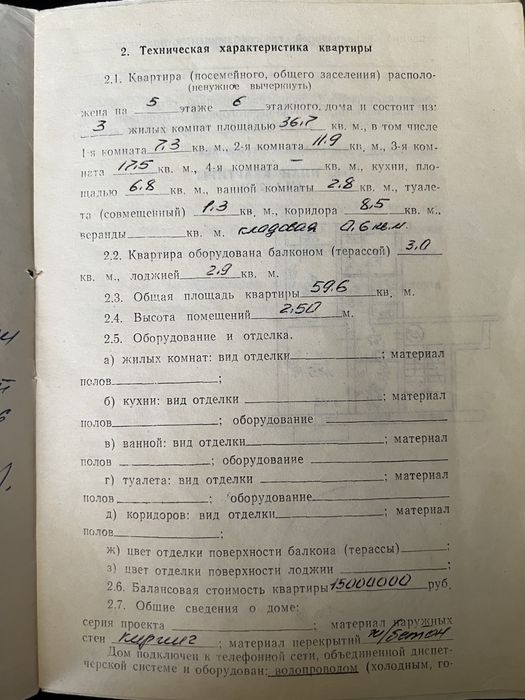 2. Техническая характеристика квартиры
2.1. Квартира (посемейного, общего заселения) располо-
(ненужное вычеркнуть)
жена на 5 этаже 6 этажного, дома и состоит из:
3 жилых комнат площадью 36,7 кв. м., в том числе
1-я комната 7,3 кв. м., 2-я комната 11,9 кв. м., 3-я ком-
ната 17,5 кв. м., 4-я комната — кв. м., кухни, пло-
щадью 6,8 кв. м., ванной комнаты 2,8 кв. м., туале-
та (совмещенный) 1,3 кв. м., коридора 8,5 кв. м.,
веранды кв. м. кладовая 0,6 кв.м.
2.2. Квартира оборудована балконом (террасой) 3,0
кв. м., лоджией 2,9 кв. м.
2.3. Общая площадь квартиры 59,6 кв. м.
2.4. Высота помещений 2,50 м.
2.5. Оборудование и отделка.
а) жилых комнат: вид отделки ; материал
полов ;
б) кухни: вид отделки ; материал
полов ; оборудование
в) ванной: вид отделки ; материал
полов ; оборудование
г) туалета: вид отделки ; материал
полов ; оборудование
д) коридоров: вид отделки ; материал
полов ;
ж) цвет отделки поверхности балкона (террасы) ;
з) цвет отделки поверхности лоджии ;
2.6. Балансовая стоимость квартиры 15004000 руб.
2.7. Общие сведения о доме:
серия проекта ; материал наружных
стен кирпич ; материал перекрытий ж/бетон
Дом подключен к телефонной сети, объединенной диспет-
черской системе и оборудован: водопроводом (холодным, го-